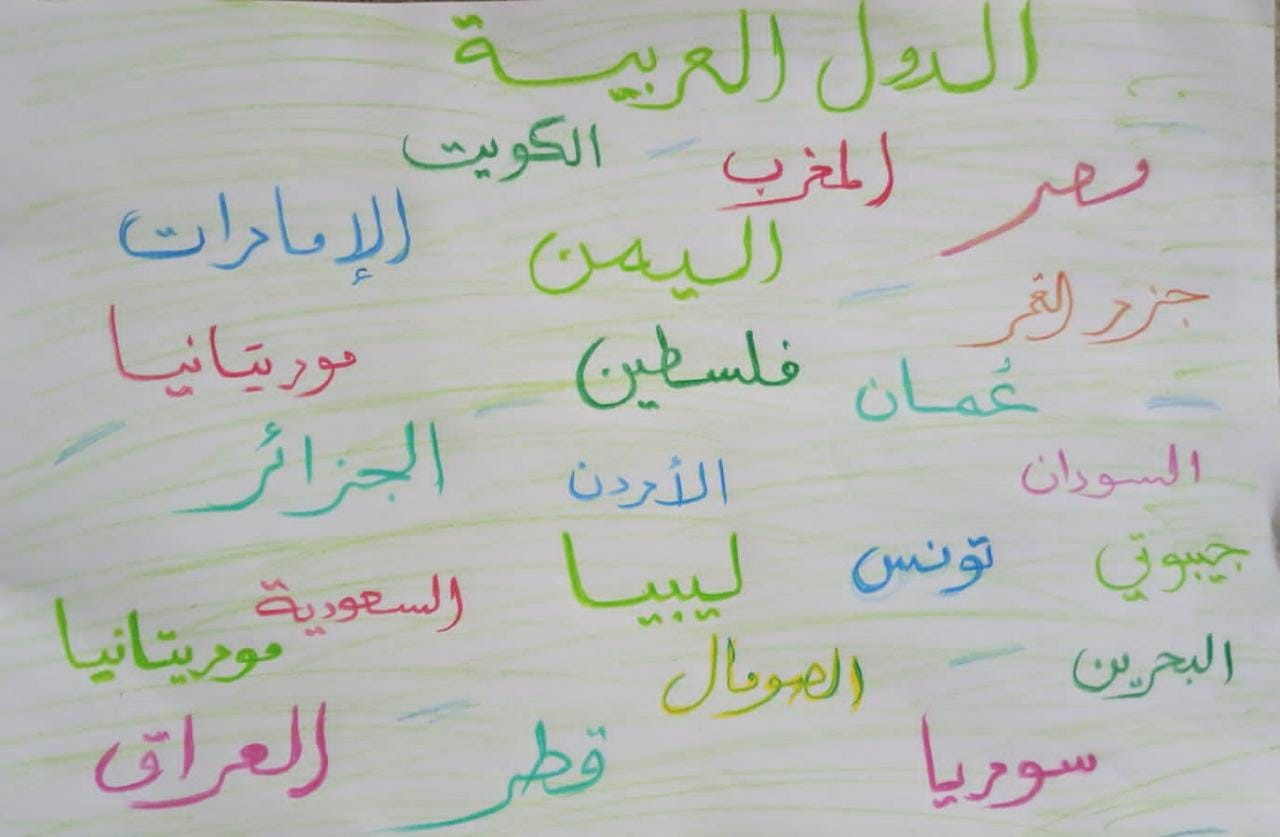 الدول العربية
مصر
المغرب
الكويت
الإمارات
اليمن
جزر القمر
عُمان
فلسطين
موريتانيا
السودان
الأردن
الجزائر
جيبوتي
تونس
ليبيا
السعودية
موريتانيا
البحرين
الصومال
سوريا
قطر
العراق